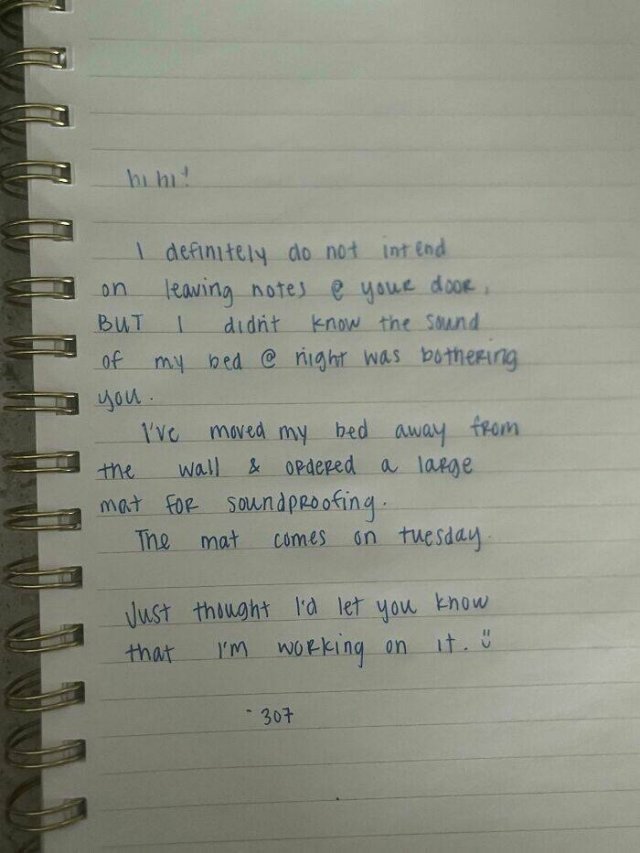 hi hi!
I definitely do not intend
on leaving notes @ your door,
BUT I didn't know the sound
of my bed @ night was bothering
you.
I've moved my bed away from
the wall & ordered a large
mat for soundproofing.
The mat comes on tuesday.
Just thought I'd let you know
that I'm working on it. :)
- 307